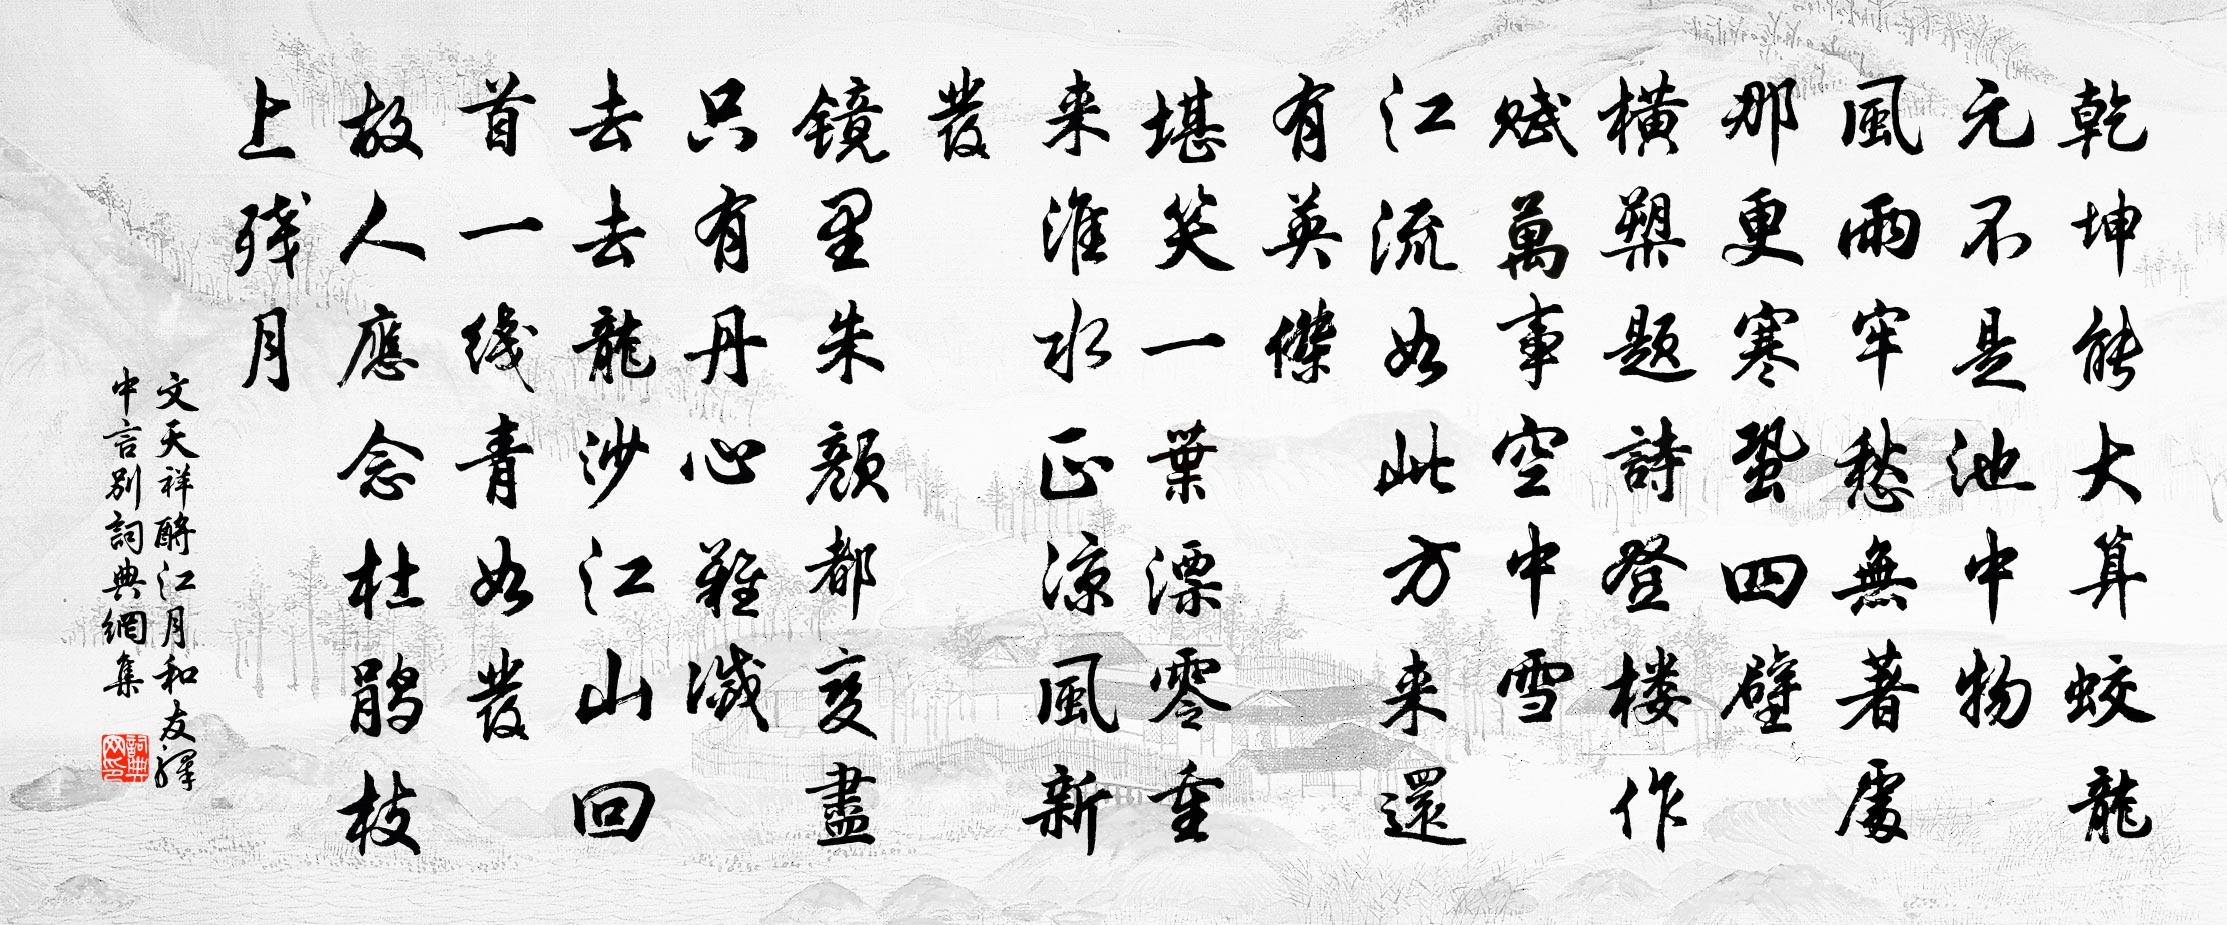 乾坤能大算蛟龍
元不是池中物
風雨牢愁無著處
那更寒蛩四壁
橫槊题詩登楼作
赋萬事空中雪
江流如此方来還
有英傑
堪笑一葉漂零重
来淮水正凉風新
發
镜里朱颜都变盡
只有丹心難滅
去去龍沙江山回
首一线青如發
故人應念杜鹃枝
上残月
文天祥酹江月和友驛
中言别詞典網集
詞典网印